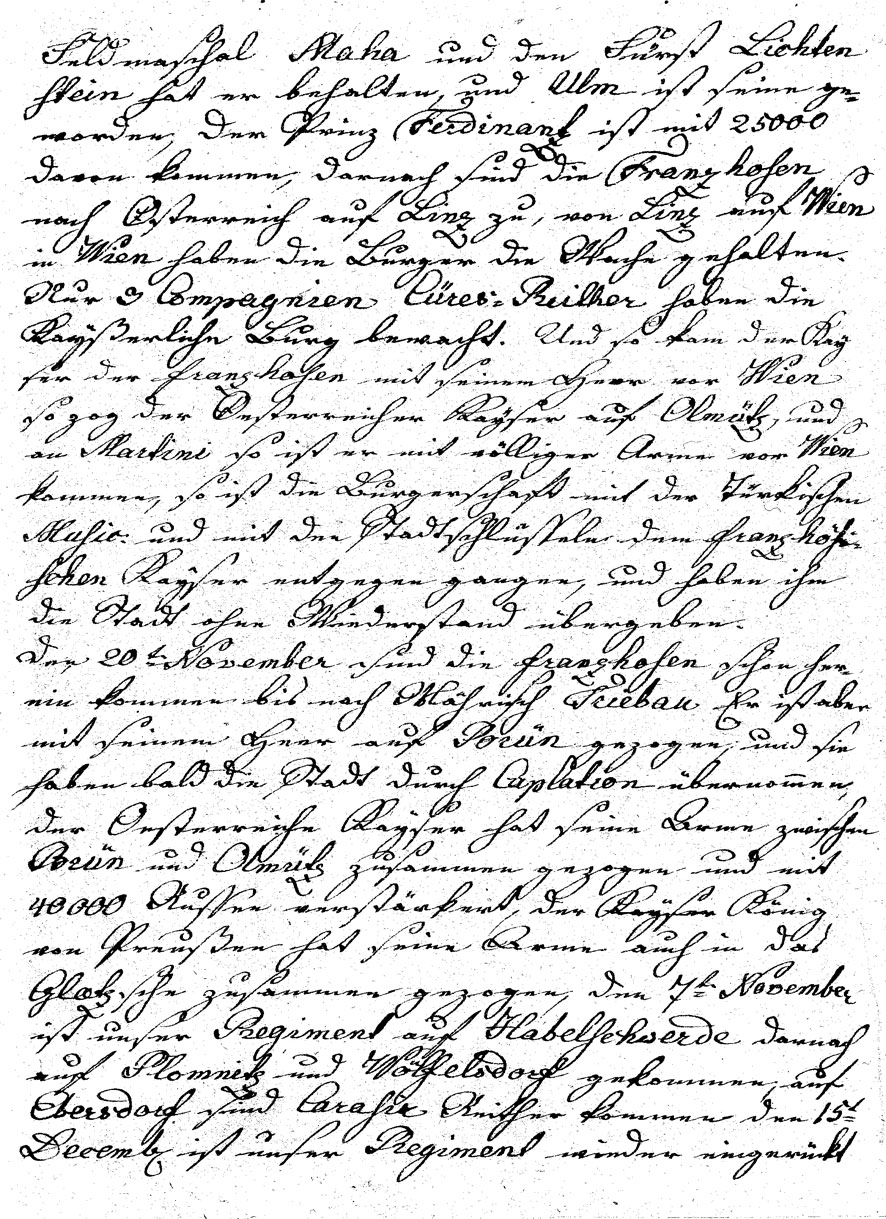 Feldmaschal Maha und den Fürst Lichten
stein hat er behalten, und Ulm ist seine ge=
worden, Der Prinz Ferdinant ist mit 25000
davon kommen, darnach sind die Franzhosen
nach Österreich auf Linz zu, von Linz auf Wien
in Wien haben die Burger die Wache gehalten.
Nur 3 Compagnien Cüres=Reither haben die
Kayßerliche Burg bewacht. Und so kam der Kay
ser der franzhosen mit seinem Heer vor Wien
so zog der Oesterreicher Kayser auf Olmütz, und
an Martini so ist er mit völliger Arme vor Wien
kommen, so ist die Burgerschaft mit der Türkischen
Music: und mit den Stadtschlüsseln dem franzhösi=
schen Kayser entgegen gangen, und haben ihm
die Stadt ohne Wiederstand übergeben.
Den 20t November sind die franzhosen schon her=
ein kommen bis nach Mährisch Triebau Er ist aber
mit seinem Heer auf Brün gezogen, und sie
haben bald die Stadt durch Caplation übernommen,
der Oesterreiche Kayser hat seine Arme zwischen
Brün und Olmütz zusammen gezogen und mit
40000 Russen verstärkert, der Kayser König
von Preußen hat seine Arme auch in das
Glatzsche zusammen gezogen, den 7t November
ist unser Regiment auf Habelschwerde darnach
auf Plomnitz und Wölfelsdorf gekommen, auf
Ebersdorf sind Carasir Reither kommen den 15t
Decemb ist unser Regiment wieder eingerückt